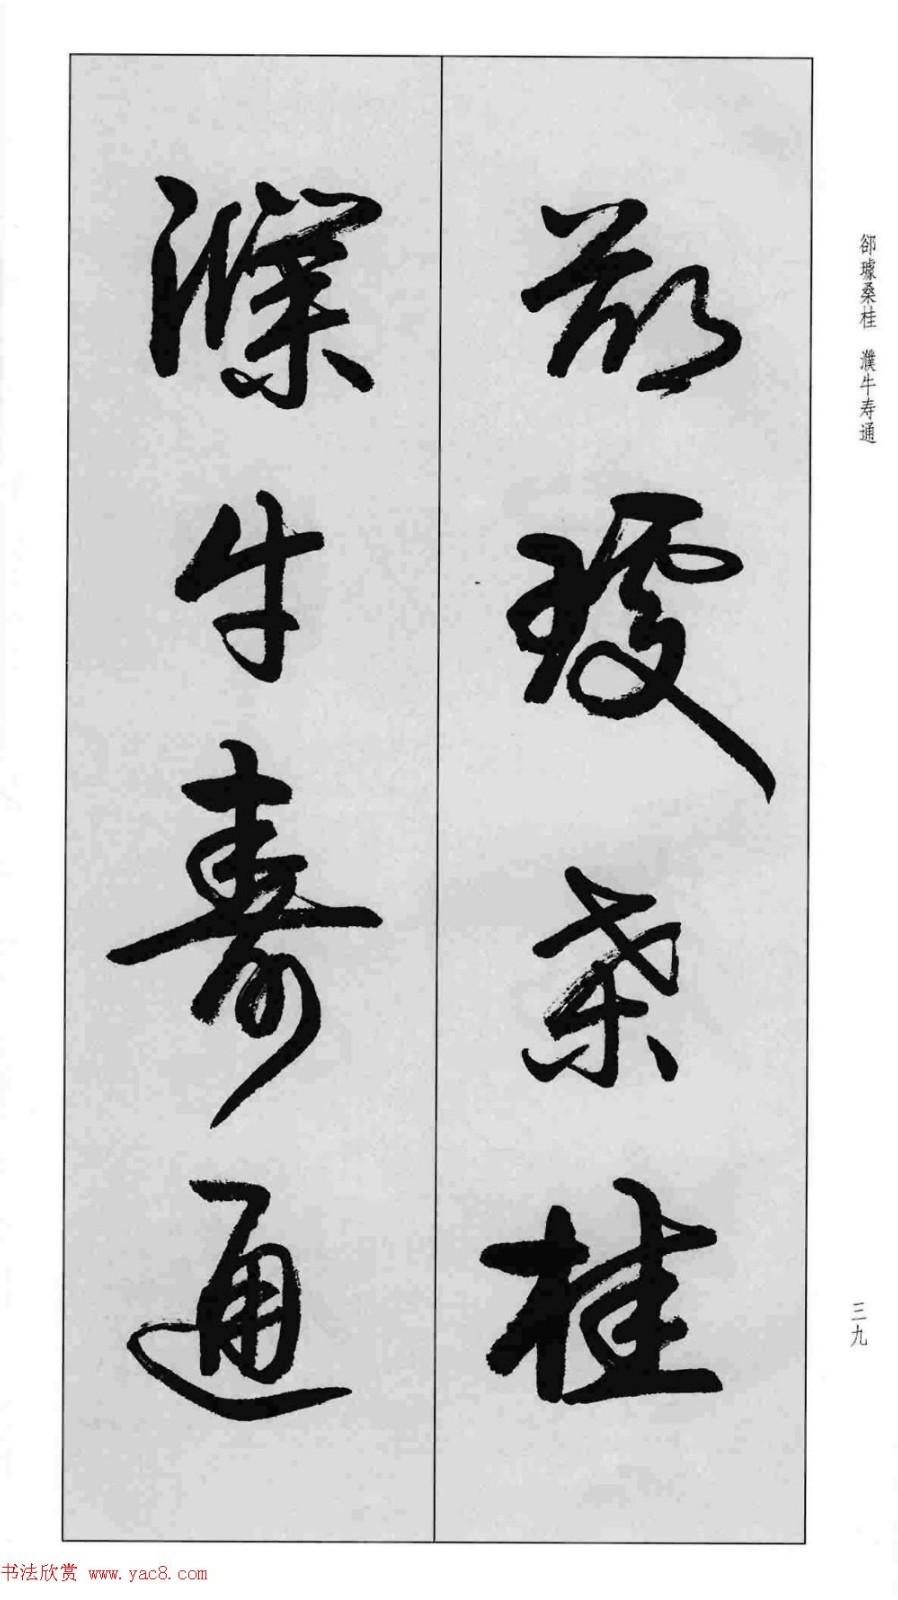 郤璩桑桂
濮牛壽通
郤璩桑桂 濮牛寿通
三九
书法欣赏 www.yac8.com